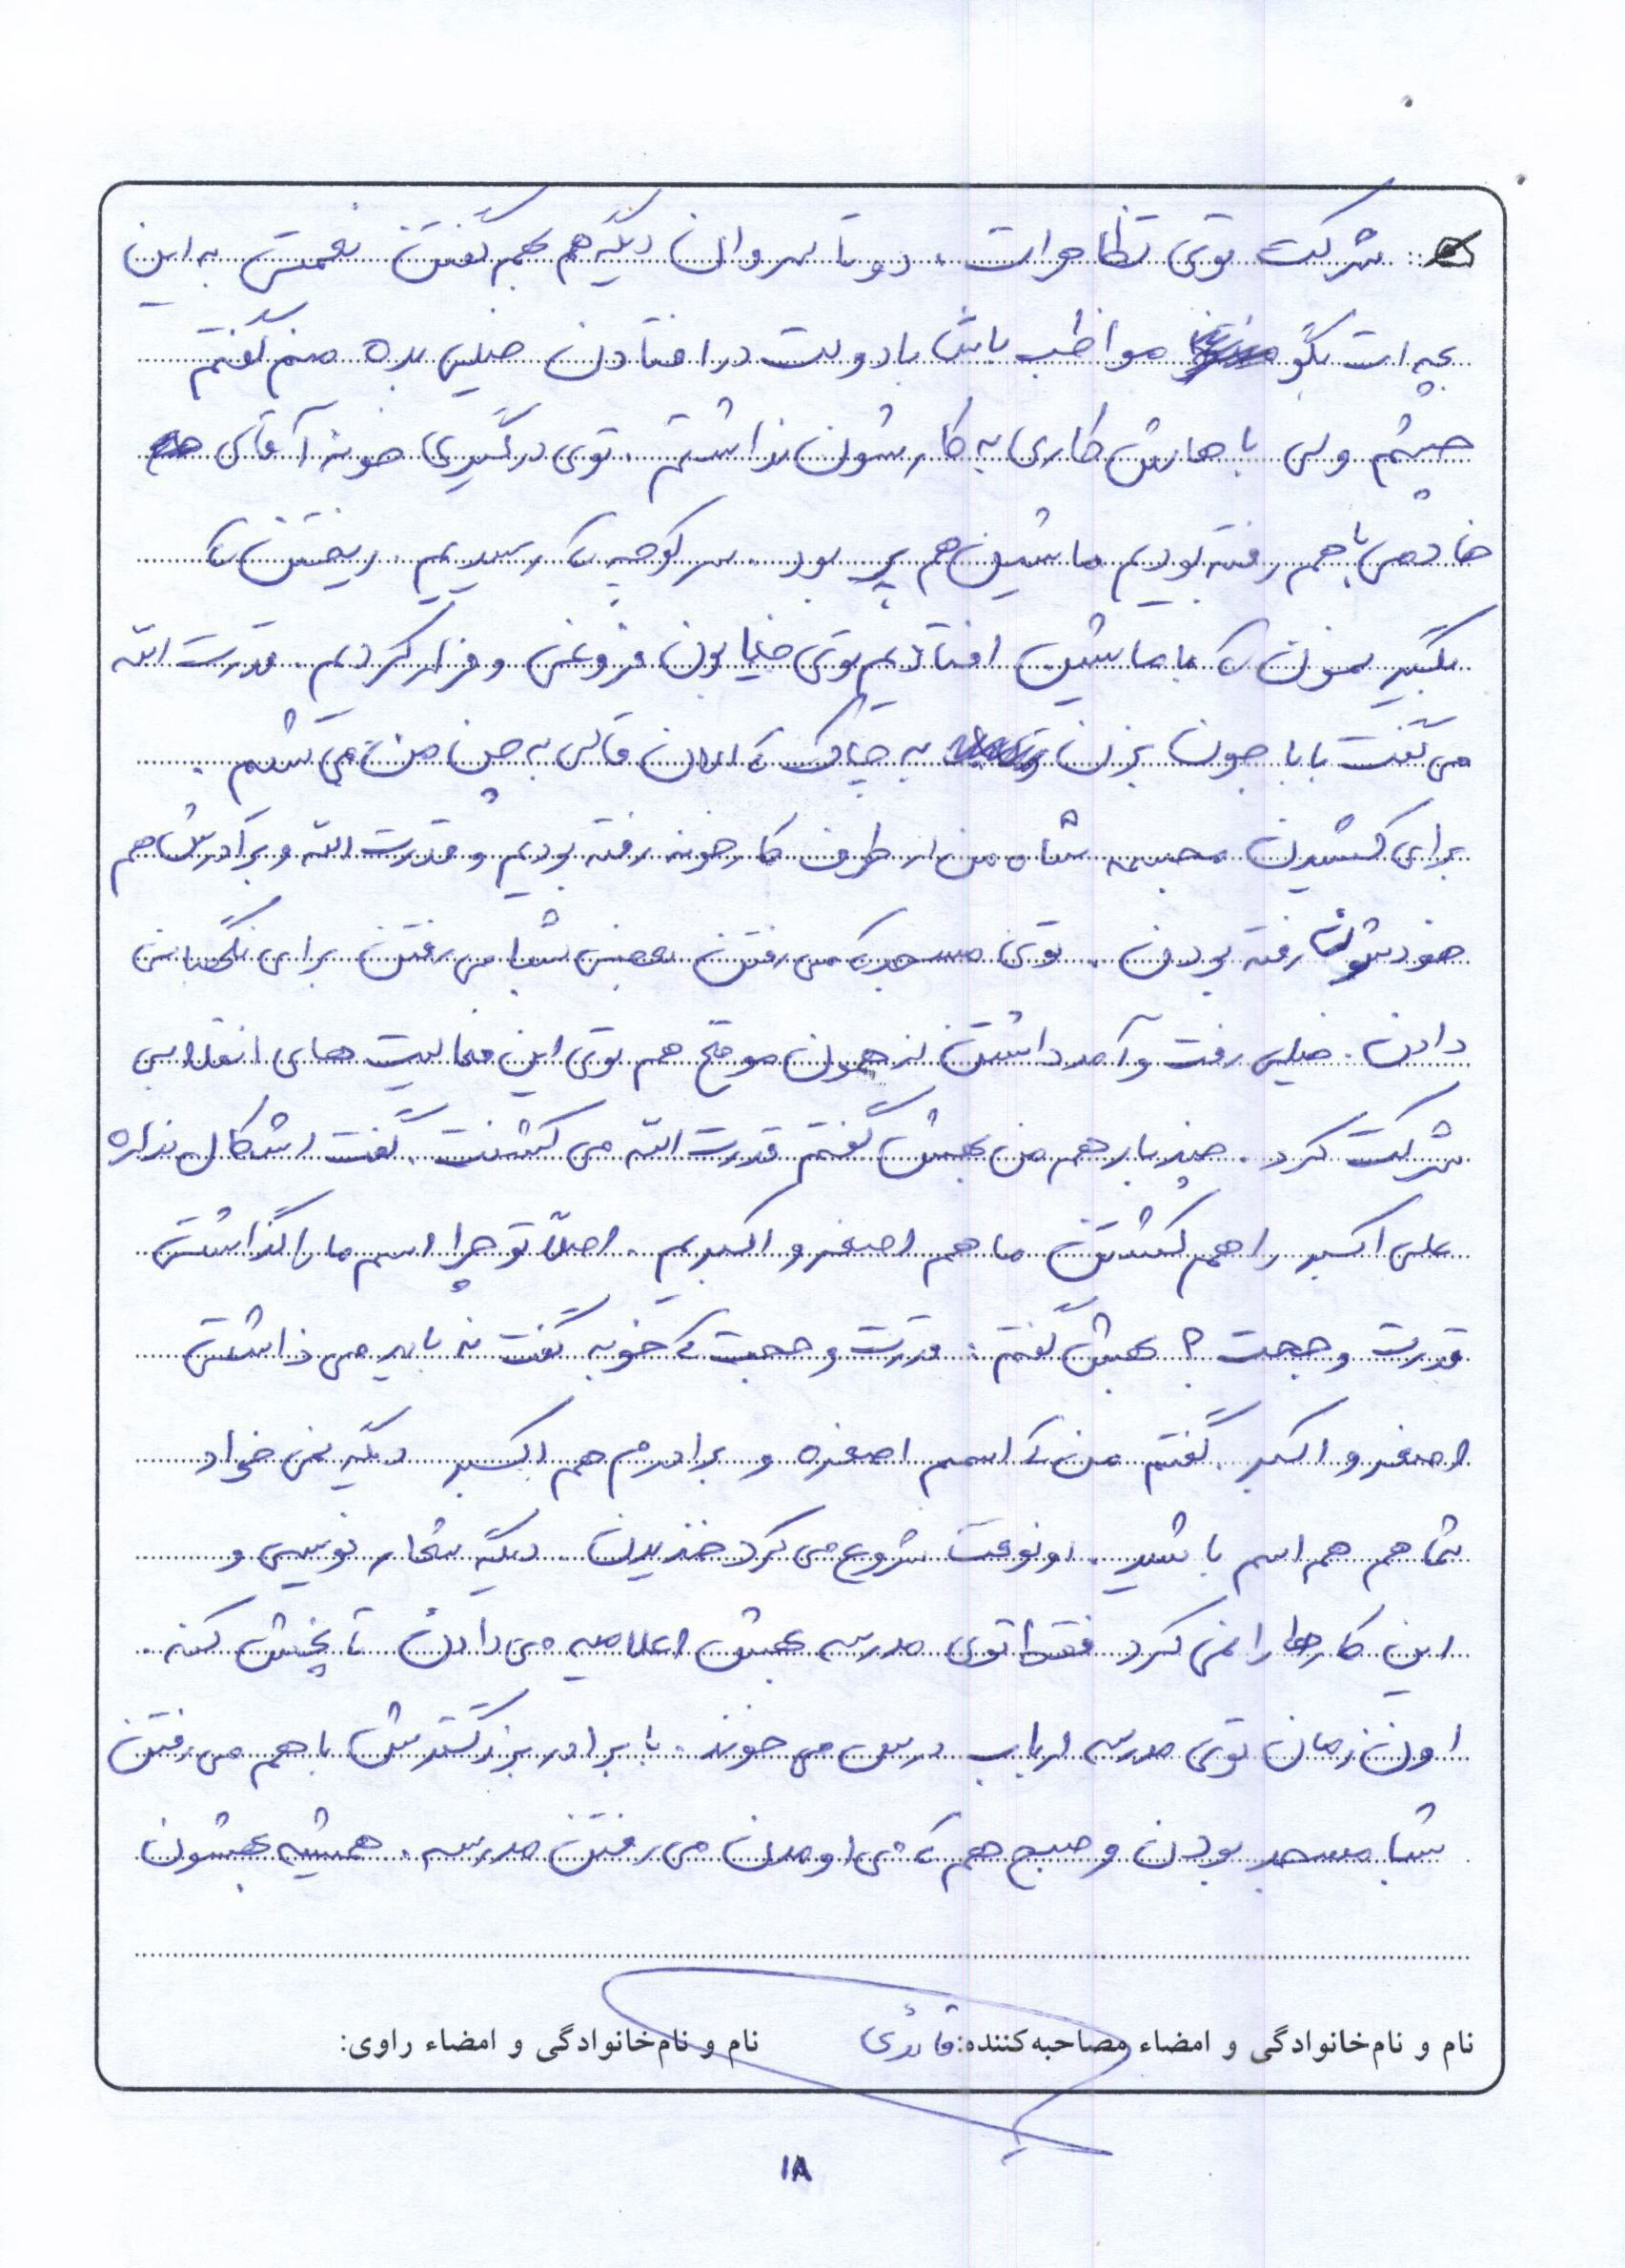 شرکت توی تظاهرات، دو تا سروان دیگه هم بهم گفتن نعمتی به این
بچه ات بگو مواظب باش با دولت در افتادن خیلی بده منم گفتم
چشم ولی باهاش کاری به کارشون نداشتم. توی درگیری خونه آقای
خادمی با هم رفته بودیم ماشین هم پر بود. سر کوچه که رسیدیم. ریختن که
بگیرنمون که با ماشین افتادیم توی خیابون فروغی و فرار کردیم. قدرت الله
می گفت بابا جون بزن به چاک که الان قالی به چن من می کشیم.
برای کشیدن مجسمه شاه من از طرف کارخونه رفته بودیم و قدرت الله و برادرش هم
خودشون رفته بودن. توی مسجد که می رفتن بعضی شبا می رفتن برای نگهبانی
دادن. خیلی رفت و آمد داشتن از همون موقع هم توی این فعالیت های انقلابی
شرکت کرد. چند بار هم من بهش گفتم قدرت الله می کشنت. گفت اشکال نداره
علی اکبر را هم کشتن ما هم اصغر و اکبریم. اصلاً تو چرا اسم ما را گذاشتی
قدرت و حجت؟ بهش گفتم: قدرت و حجت که خوبه گفت نه باید می ذاشتی
اصغر و اکبر. گفتم من که اسمم اصغره و برادرم هم اکبر دیگه نمی خواد
شما هم هم اسم باشید. اونوقت شروع می کرد خندیدن. دیگه شعار نویسی و
این کارها را نمی کرد فقط توی مدرسه بهش اعلامیه می دادن تا پخش کنه.
اون زمان توی مدرسه ارباب درس می خوند. با برادر بزرگترش با هم می رفتن
شبا مسجد بودن و صبح هم که می اومدن می رفتن مدرسه. همیشه بهشون
نام و نام‌خانوادگی و امضاء مصاحبه‌کننده: قائدی نام و نام‌خانوادگی و امضاء راوی:
۱۸